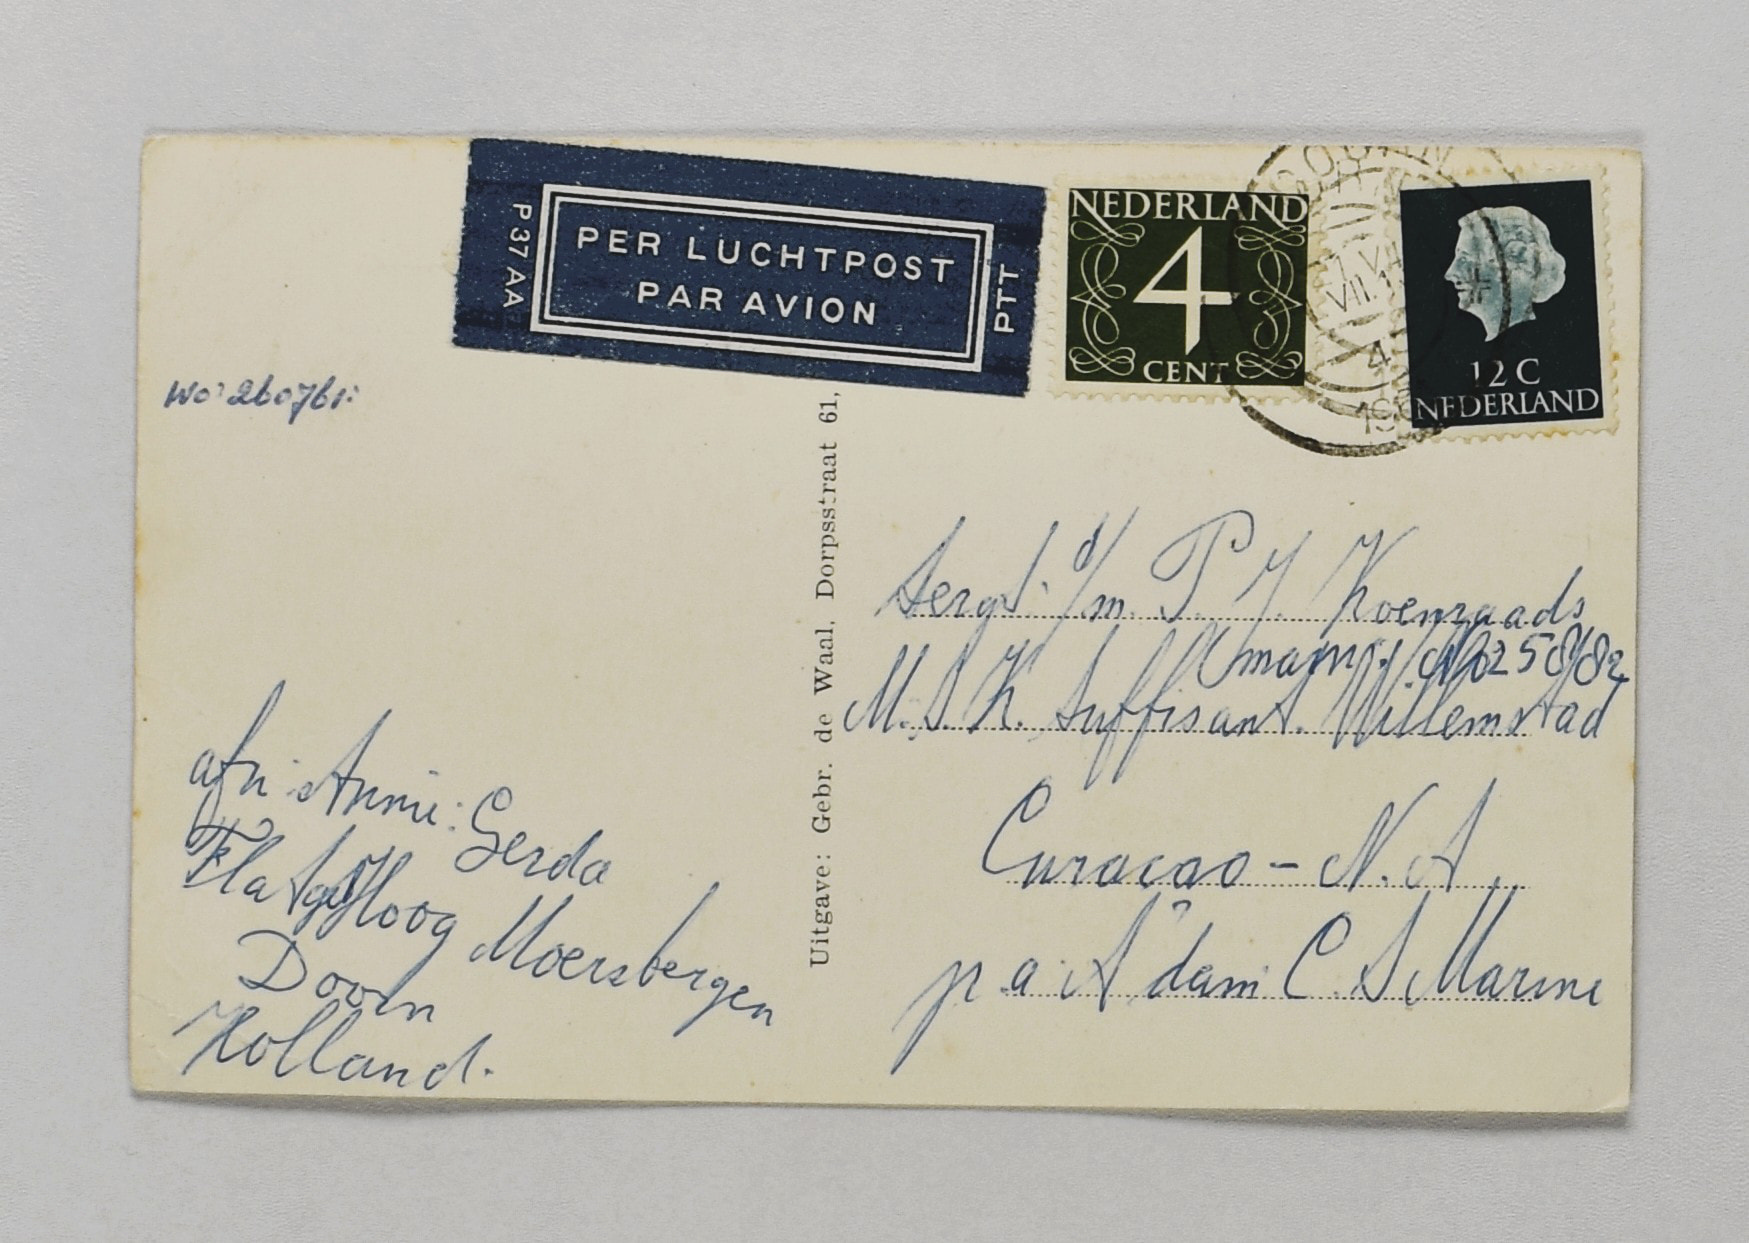 P37 AA
PER LUCHTPOST
PAR AVION
PTT
NEDERLAND
4
CENT
12 C
NEDERLAND
wo: 260761:
Uitgave: Gebr. de Waal, Dorpsstraat 61,
Sergt. v/m. P. J. Koenraads
Marn. No 25882
M.S.K. Suffisant. Willemstad
Curacao - N.A.
p.a. A'dam C.S Marine
afz: Annie: Gerda
Flatge Hoog Moersbergen
Doorn
Holland.